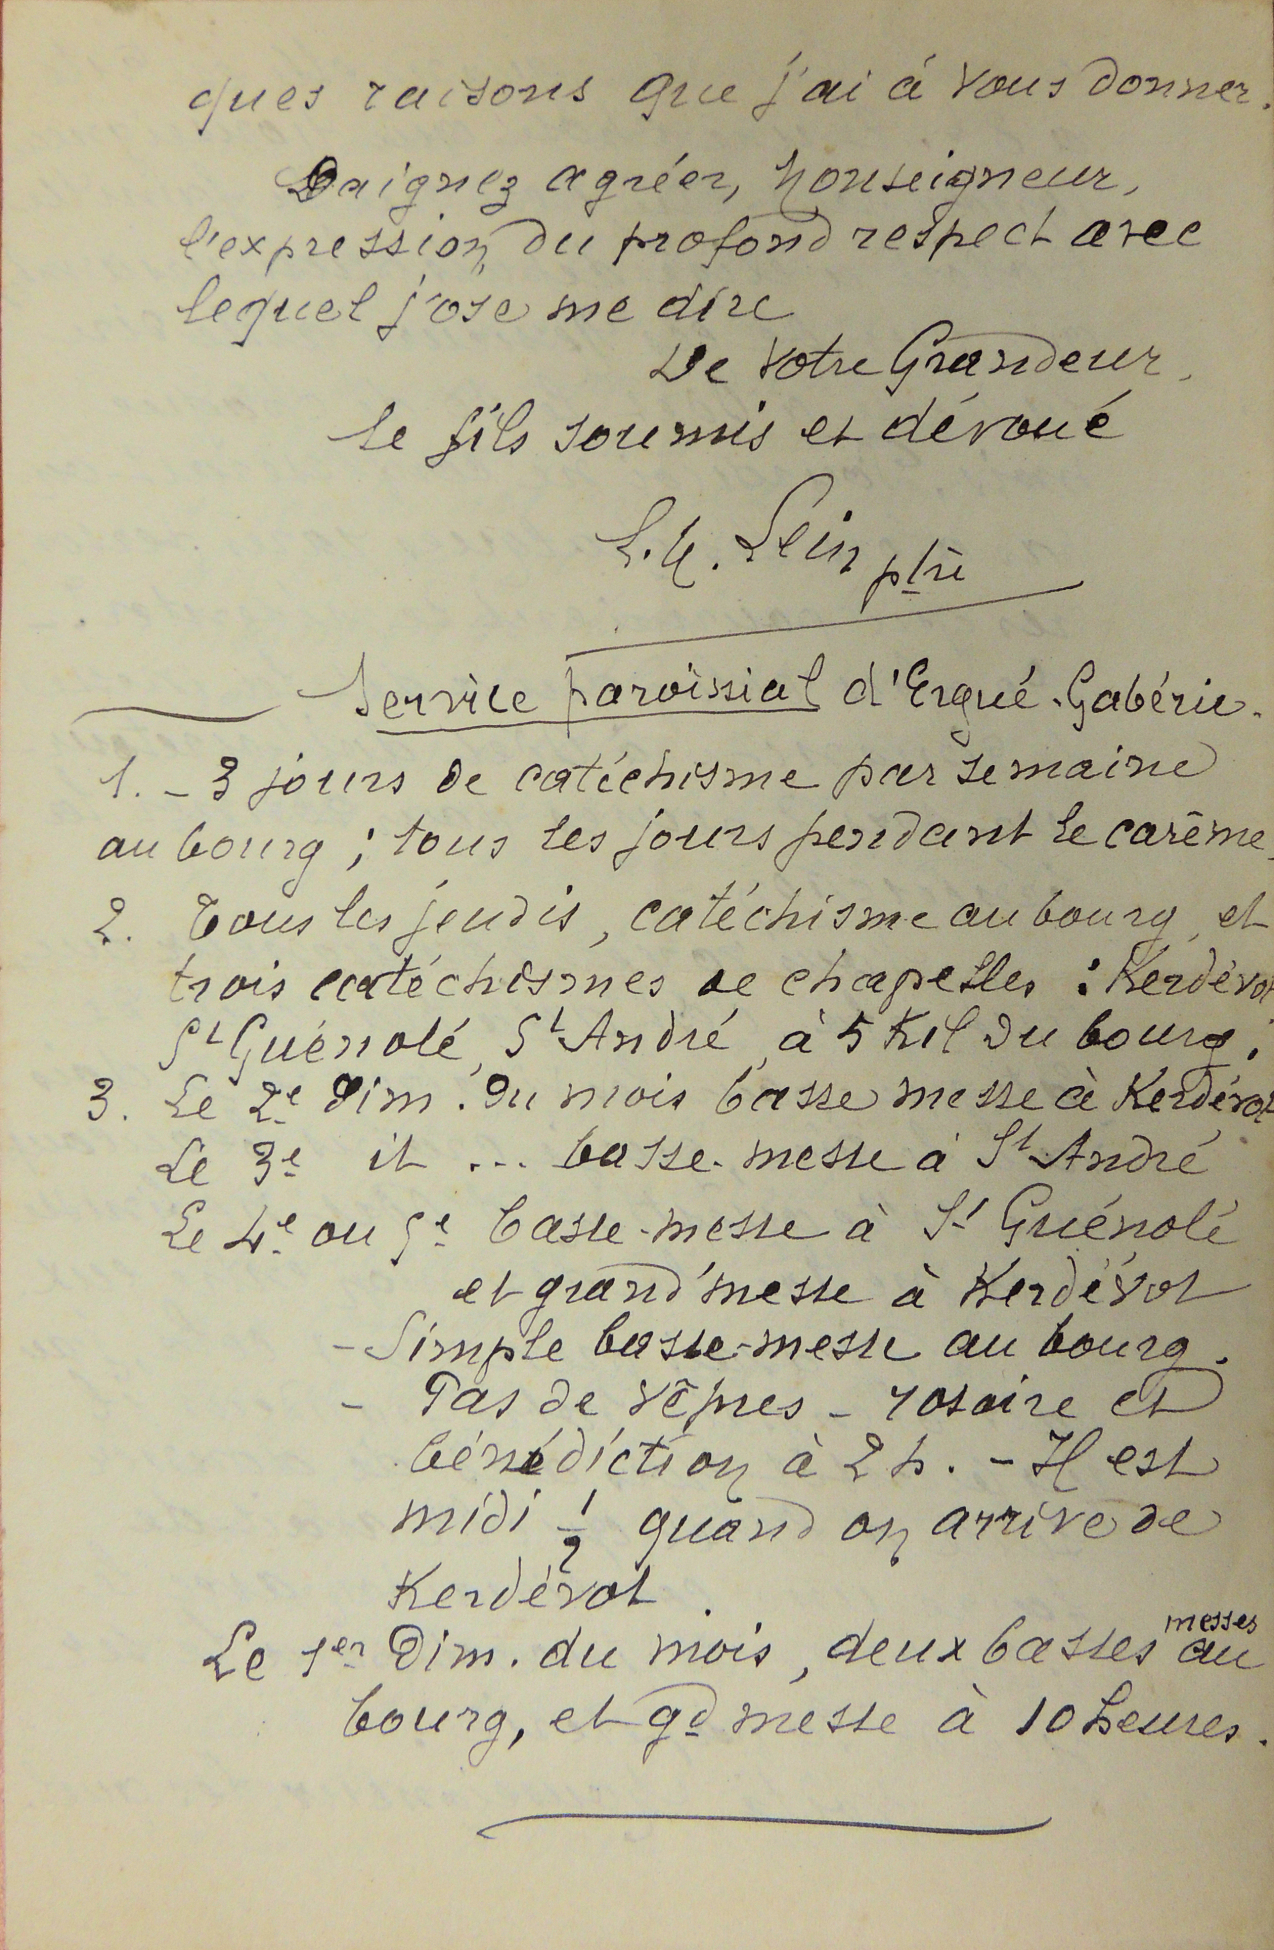 ques raisons que j'ai à vous donner.
Daignez agréer, Monseigneur,
l'expression du profond respect avec
lequel j'ose me dire
De Votre Grandeur,
le fils soumis et dévoué
L. M. Lein ptre
Service paroissial d'Ergué-Gabéric.
1. - 3 jours de catéchisme par semaine
au bourg ; tous les jours pendant le carême.
2. Tous les jeudis, catéchisme au bourg, et
trois catéchismes de chapelles : Kerdévot
St Guénolé, St André, à 5 Kil du bourg.
3. Le 2e Dim. du mois basse messe à Kerdévot
Le 3e it ... basse-messe à St André
Le 4e ou 5e basse-messe à St Guénolé
et grand'messe à Kerdévot
- Simple basse-messe au bourg.
- Pas de vêpres - rosaire et
bénédiction à 2 h. - Il est
midi 1/2 quand on arrive de
Kerdévot
Le 1er Dim. du mois, deux basses messes au
bourg, et gd messe à 10 heures.